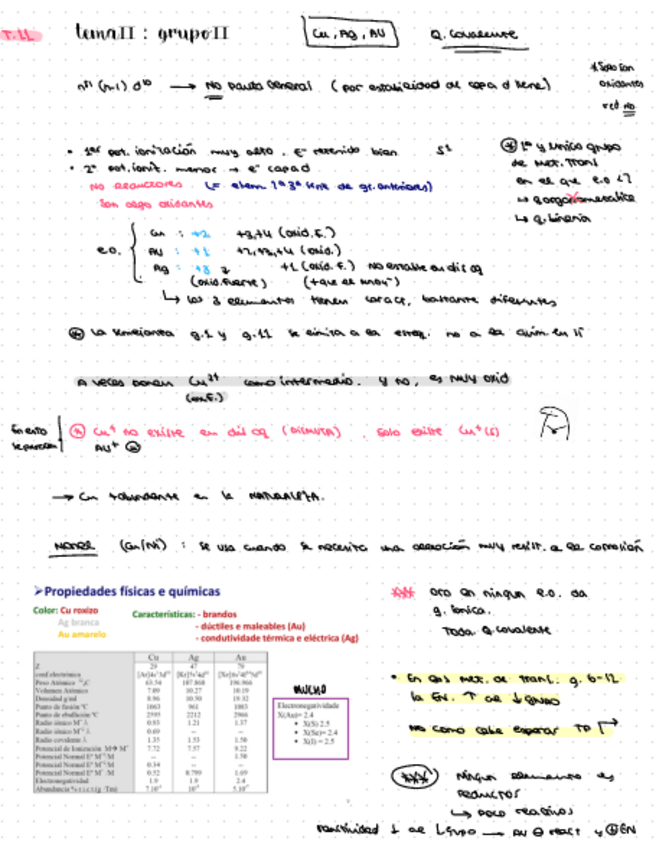 T.11 tema II : grupo 11 Cu, Ag, Au Q. covalente
ns¹ (n-1) d¹⁰ → No pauta general (por estabilidad de capa d llena)
* Solo son
oxidantes
red no
• 1er pot. ionización muy alto. e⁻ retenido bien s¹
• 2º pot. ioniz. menor → e⁻ capa d
NO REDUCTORES (= elem. 2ª 3ª serie de gr. anteriores)
Son algo oxidantes
1º y único grupo
de met. trans
en el que e.o
q. organometálica
q. binaria
e.o.
Cu : +2 +3,+4 (oxid. F.)
Au : +1, +2,+3,+4 (oxid.)
Ag : +3 +1 (oxid. F.) no estable en dis aq
(oxid. fuerte)
↳ los 3 elementos tienen caract. bastante diferentes
La semejanza g.1 y g.11 se limita a la esteq. no a la quim. en sí
A veces ponen Cu³⁺ como intermedio. y no, es muy oxid
En esto
se parecen
Cu⁺ no existe en dis aq (DISMUTA). Solo existe Cu⁺(s)
Au⁺
→ Cu +abundante en la NATURALEZA.
MONEL (Cu/Ni) : se usa cuando se necesita una aleación muy resist. a la corrosión
➢Propiedades físicas e químicas
Color: Cu roxizo
Ag branca
Au amarelo
Características: - brandos
- dúctiles e maleables (Au)
- condutividade térmica e eléctrica (Ag)
Cu Ag Au
Z 29 47 79
conf electrónica
Peso Atómico 63.54 107.868 196.966
Volumen Atómico 7.09 10.27 10.19
Densidad g/ml 8.96 10.50 19.32
Punto de fusión ºC 1083 961 1063
Punto de ebullición ºC 2595 2212 2966
Radio iónico M⁺ Å 0.93 1.21 1.37
Radio iónico 0.69 -- --
Radio covalente Å 1.35 1.53 1.50
Potencial de Ionización M→M⁺ 7.72 7.57 9.22
Potencial Normal -- -- 1.50
Potencial Normal 0.34 -- --
Potencial Normal 0.52 0.799 1.69
Electronegatividad 1.9 1.9 2.4
MUCHO
Electronegatividad
X(Au)= 2.4
• X(S) 2.5
• X(Se)= 2.4
• X(I) = 2.5
*** oro en ningun e.o. da
q. iónica.
Toda q. covalente
• En los met. de trans. g. 6-12
la EN. ↑ al ↓ grupo
no como cabe esperar TP
*** Ningun elemento es
reductor
↳ poco reactivos
reactividad ↓ al ↓ grupo → Au ⊖ react y ⊕ EN